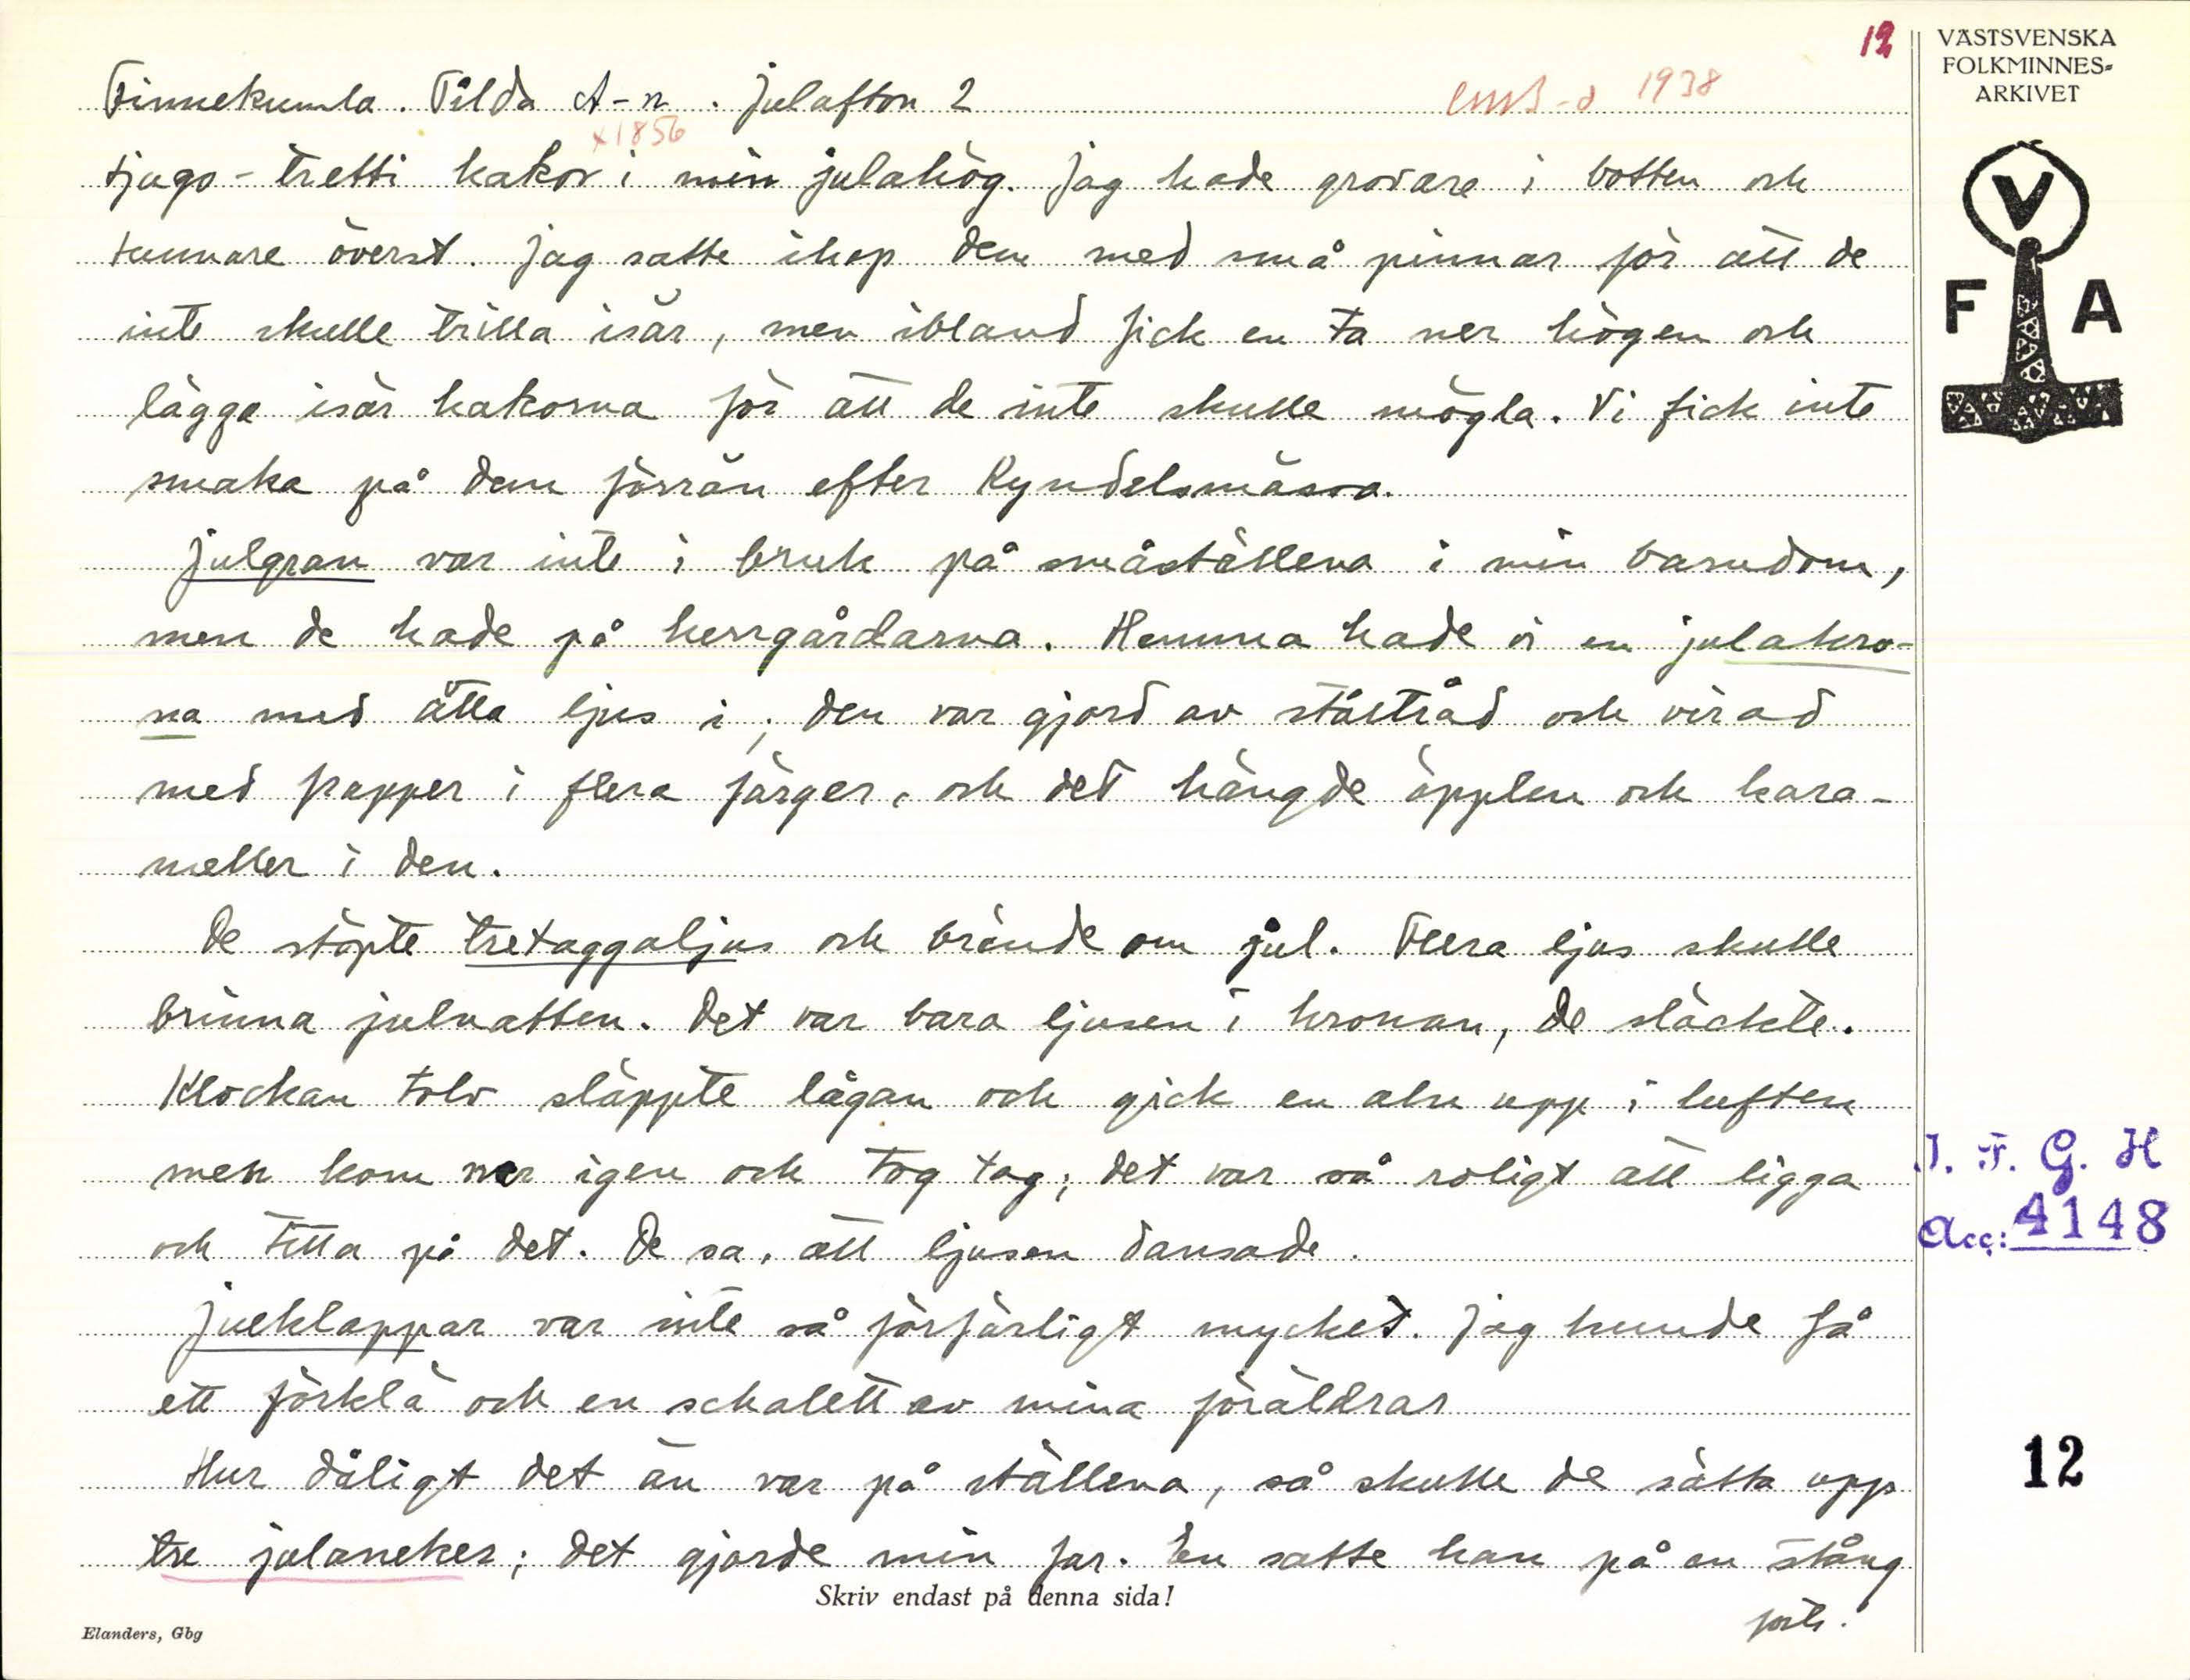 12
VÄSTSVENSKA
FOLKMINNES-
ARKIVET
Finnekumla. Tilda A-n. Julafton 2
1938
x1856
tjugo-tretti kakor i min julahög. Jag hade grövare i botten och
tunnare överst. Jag satte ihop dem med små pinnar för att de
inte skulle trilla isär, men ibland fick en ta ner högen och
lägga isär kakorna för att de inte skulle mögla. Vi fick inte
smaka på dem förrän efter Kyndelsmässa.
Julgran var inte i bruk på småställena i min barndom,
men de hade på herrgårdarna. Hemma hade vi en julakro-
na med åtta ljus i; den var gjord av ståltråd och virad
med papper i flera färger, och det hängde äpplen och kara-
meller i den.
De stöpte tretaggaljus och brände om jul. Flera ljus skulle
brinna julnatten. Det var bara ljusen i kronan, de släckte.
Klockan tolv släppte lågan och gick en aln upp i luften
men kom ner igen och tog tag; det var så roligt att ligga
och titta på det. De sa, att ljusen dansade.
Julklappar var inte så förfärligt mycket. Jag kunde få
ett förklä och en schalett av mina föräldrar
Hur dåligt det än var på ställena, så skulle de sätta upp
tre julaneker; det gjorde min far. En satte han på en stång
forts.
Skriv endast på denna sida!
Elanders, Gbg
V
F A
I. F. G. H
Acc: 4148
12